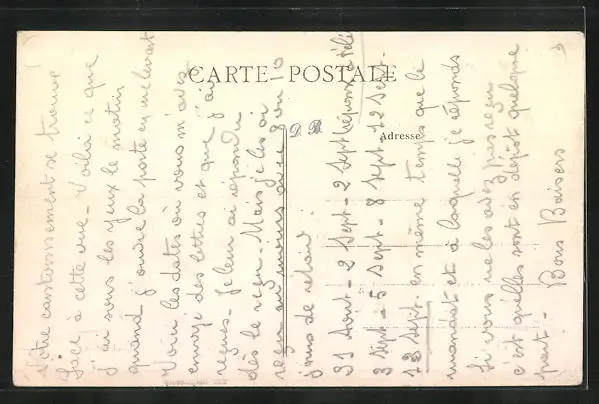 CARTE POSTALE
D. B.
Adresse
Notre cantonnement se trouve
face à cette vue - Voilà ce que
j'ai sous les yeux le matin
quand j'ouvre la porte en me levant
Voici les dates où vous m'avez
envoyé des lettres et que j'ai
reçues - Je leur ai répondu
dès le reçu - Mais je les ai
reçu au moins avec 8 ou 10
jours de retard.
31 Aout - 2 Sept - 2 Sept réponse à
3 Sept - 5 Sept - 8 Sept - 12 Sept -
13 Sept. en même temps que le
mandat et à laquelle je réponds
Si vous ne les avez pas reçu
c'est qu'elles sont en dépôt quelque
part - Bons Baisers